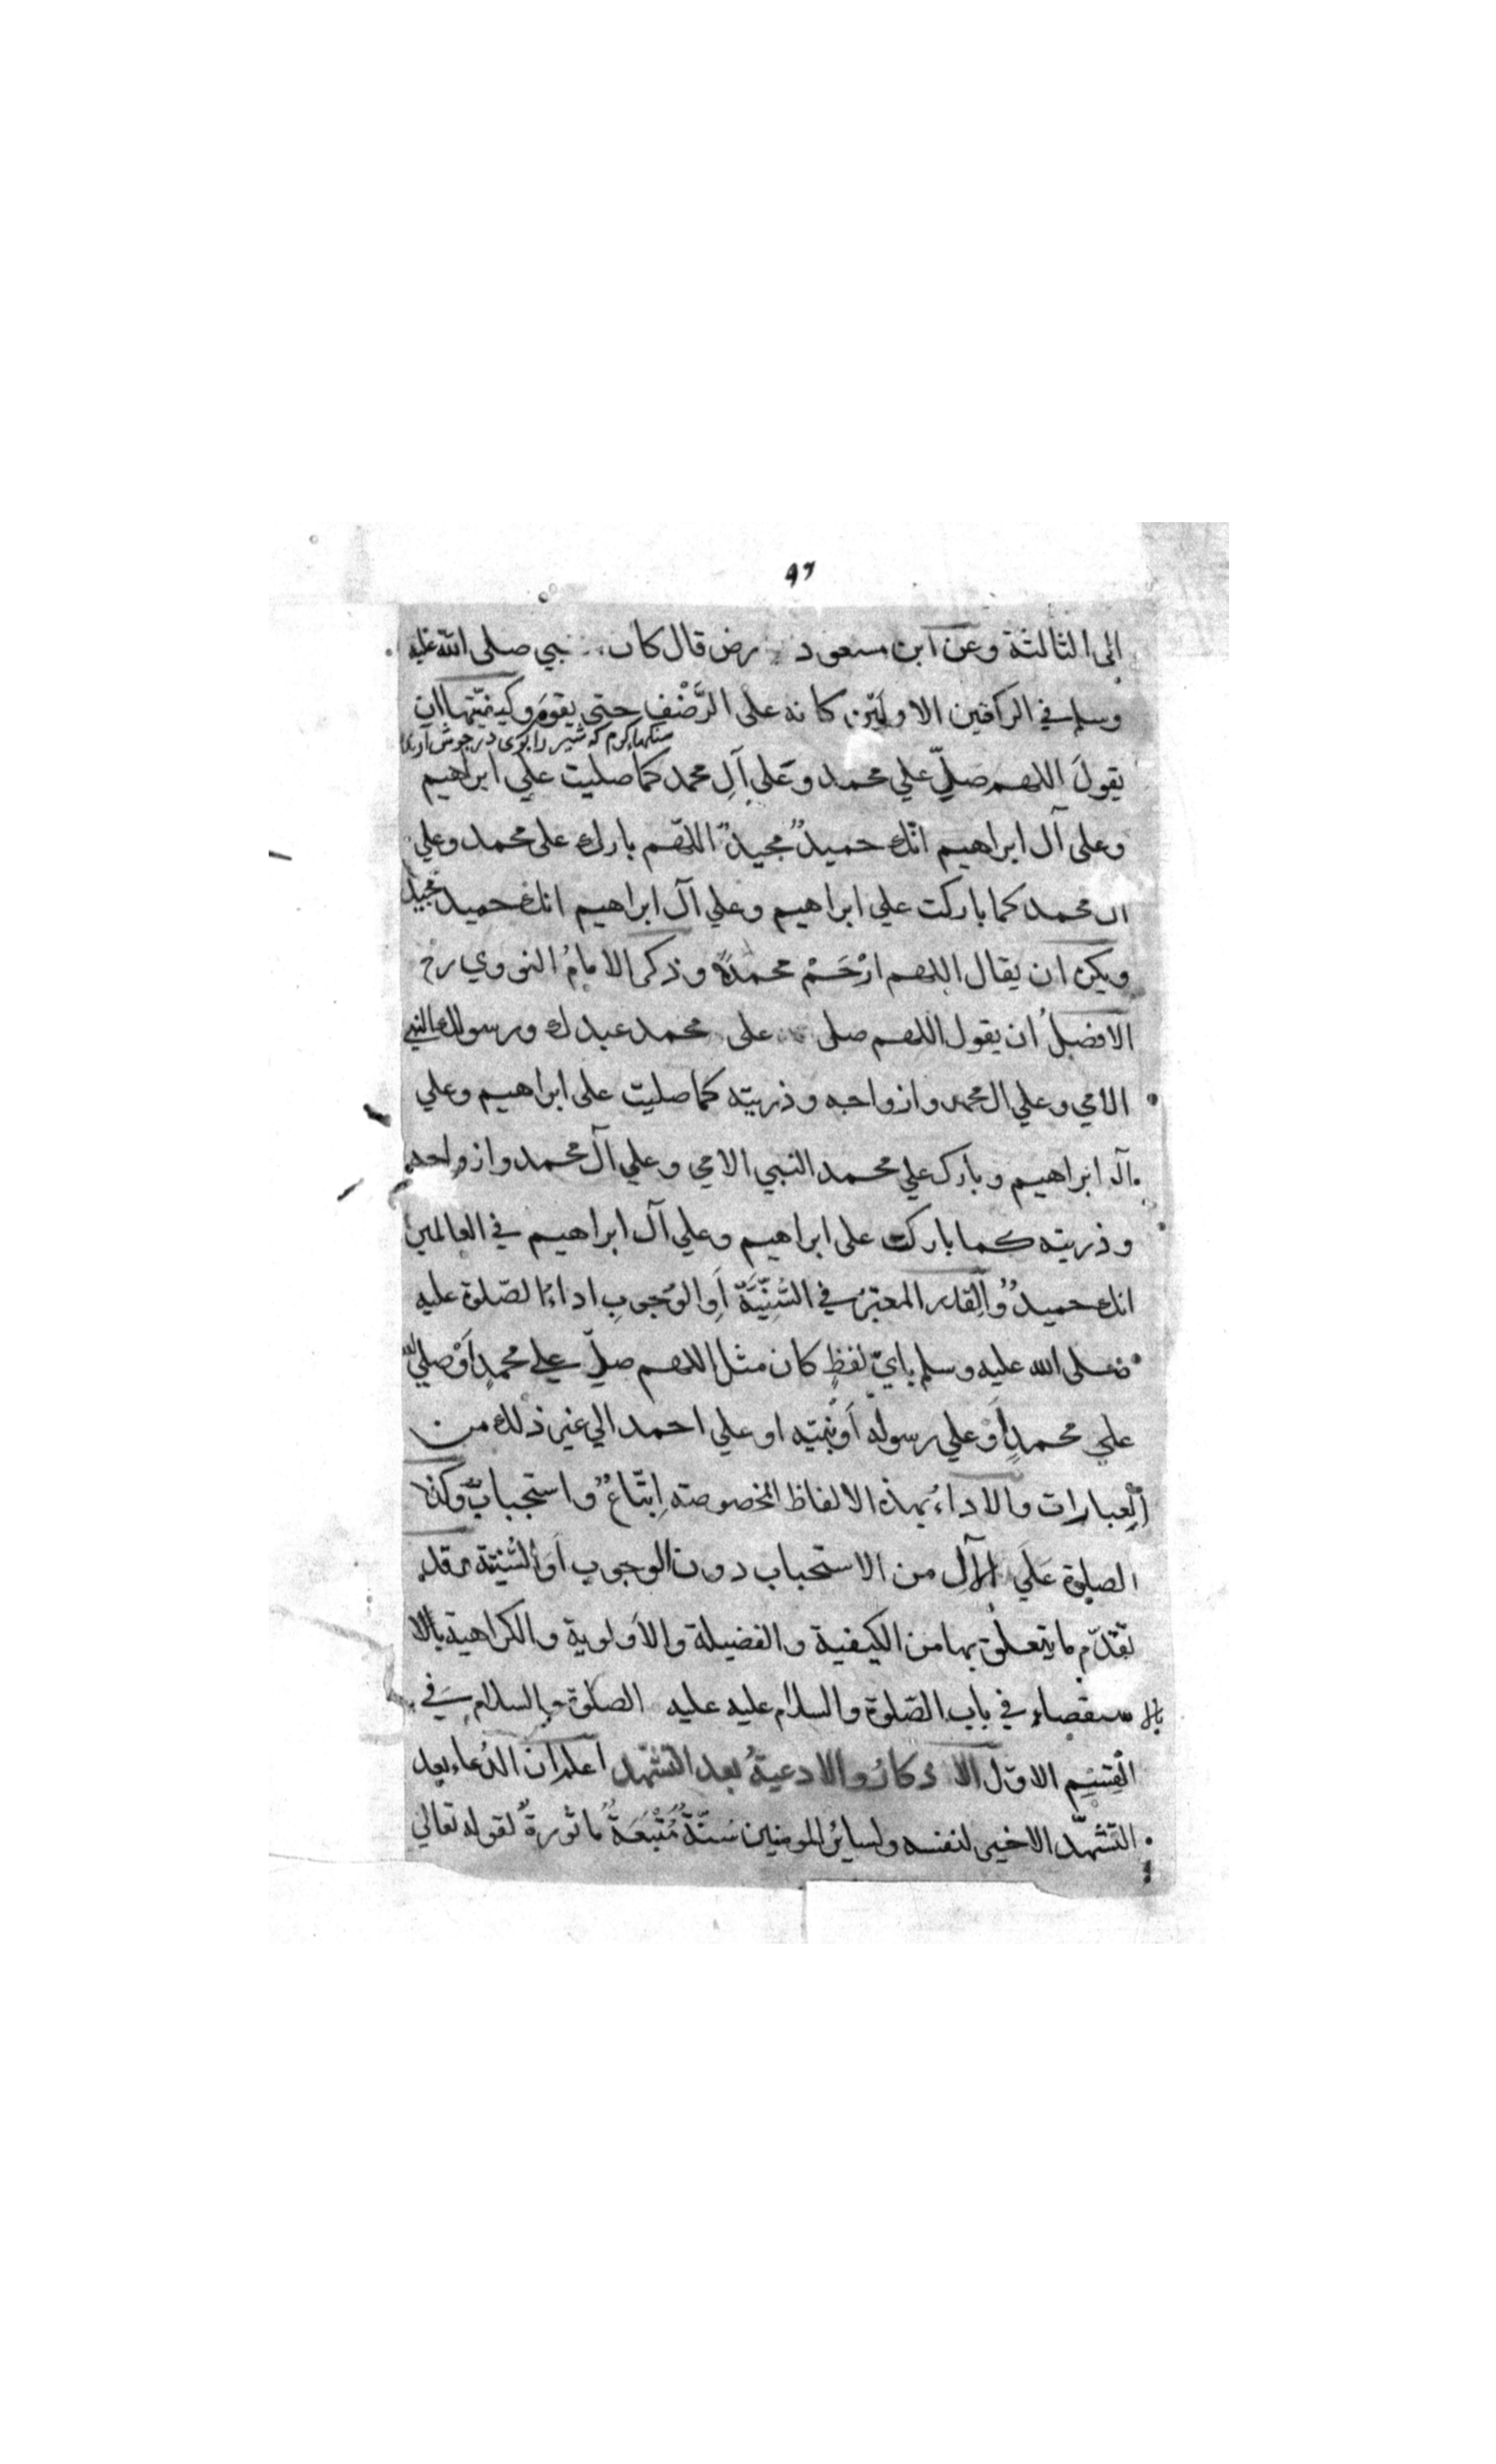 ٩٦
الى الثالثة وعن ابن مسعود رض قال كان نبي صلى الله عليه
وسلم في الركعتين الاوليين كانه على الرَّضْفِ حتى يقومَ وكيفيّتها ان
سنكهاء كرم كه شير را بوى در جوش آرند
يقولَ اللهم صلِّ علي محمد وعلي آلِ محمد كما صليت علي ابراهيم
وعلى آل ابراهيم انّك حميدٌ مجيدٌ اللّهم بارك على محمد وعلي
ال محمد كما باركت علي ابراهيم وعلي آل ابراهيم انك حميد مجيد
ويكره ان يقال اللهم ارْحَمْ محمدًا وذكر الامامُ النووي رح
الافضلُ ان يقول اللهم صلى على محمد عبدك ورسولك النبي
الامي وعلي ال محمد وازواجه وذريته كما صليت على ابراهيم وعلي
آل ابراهيم وبارك علي محمد النبي الامي وعلي آل محمد وازواجه
وذريته كما باركت على ابراهيم وعلي آل ابراهيم في العالمين
انك حميدٌ والقدر المعتبرُ في السُّنِّيَّة اَوِ الوُجوبِ اداءُ الصّلوة عليه
صلى الله عليه وسلم بايّ لفظٍ كان مثل اللهم صلِّ علي محمدٍ اَوْ صلي الله
علي محمدٍ اَوْ علي رسولِه اَوْ نبيّه او علي احمد الي غير ذلك من
العبارات والاداءُ بهذه الالفاظ المخصوصته اِتّباعٌ واستحبابٌ وكذا
الصلوة عَلَي الآل من الاستحباب دون الوجوب اَوِ السُّنيّة وقد
تقدّم ما يتعلق بها من الكيفية والفضيلة والاَولوية والكراهية بالا
بالا ستقصاءِ في باب الصّلوة والسلام عليه عليه الصلوة والسلام في
القِسْمِ الاوّل الاذكارُ والادعيةُ بعد التشهّد اعلم ان الدُعاء بعد
التشهّد الاخير لنفسه ولسايرُ المومنين سُنّةٌ مُتّبَعَةٌ ماثورةٌ لقوله تعالي